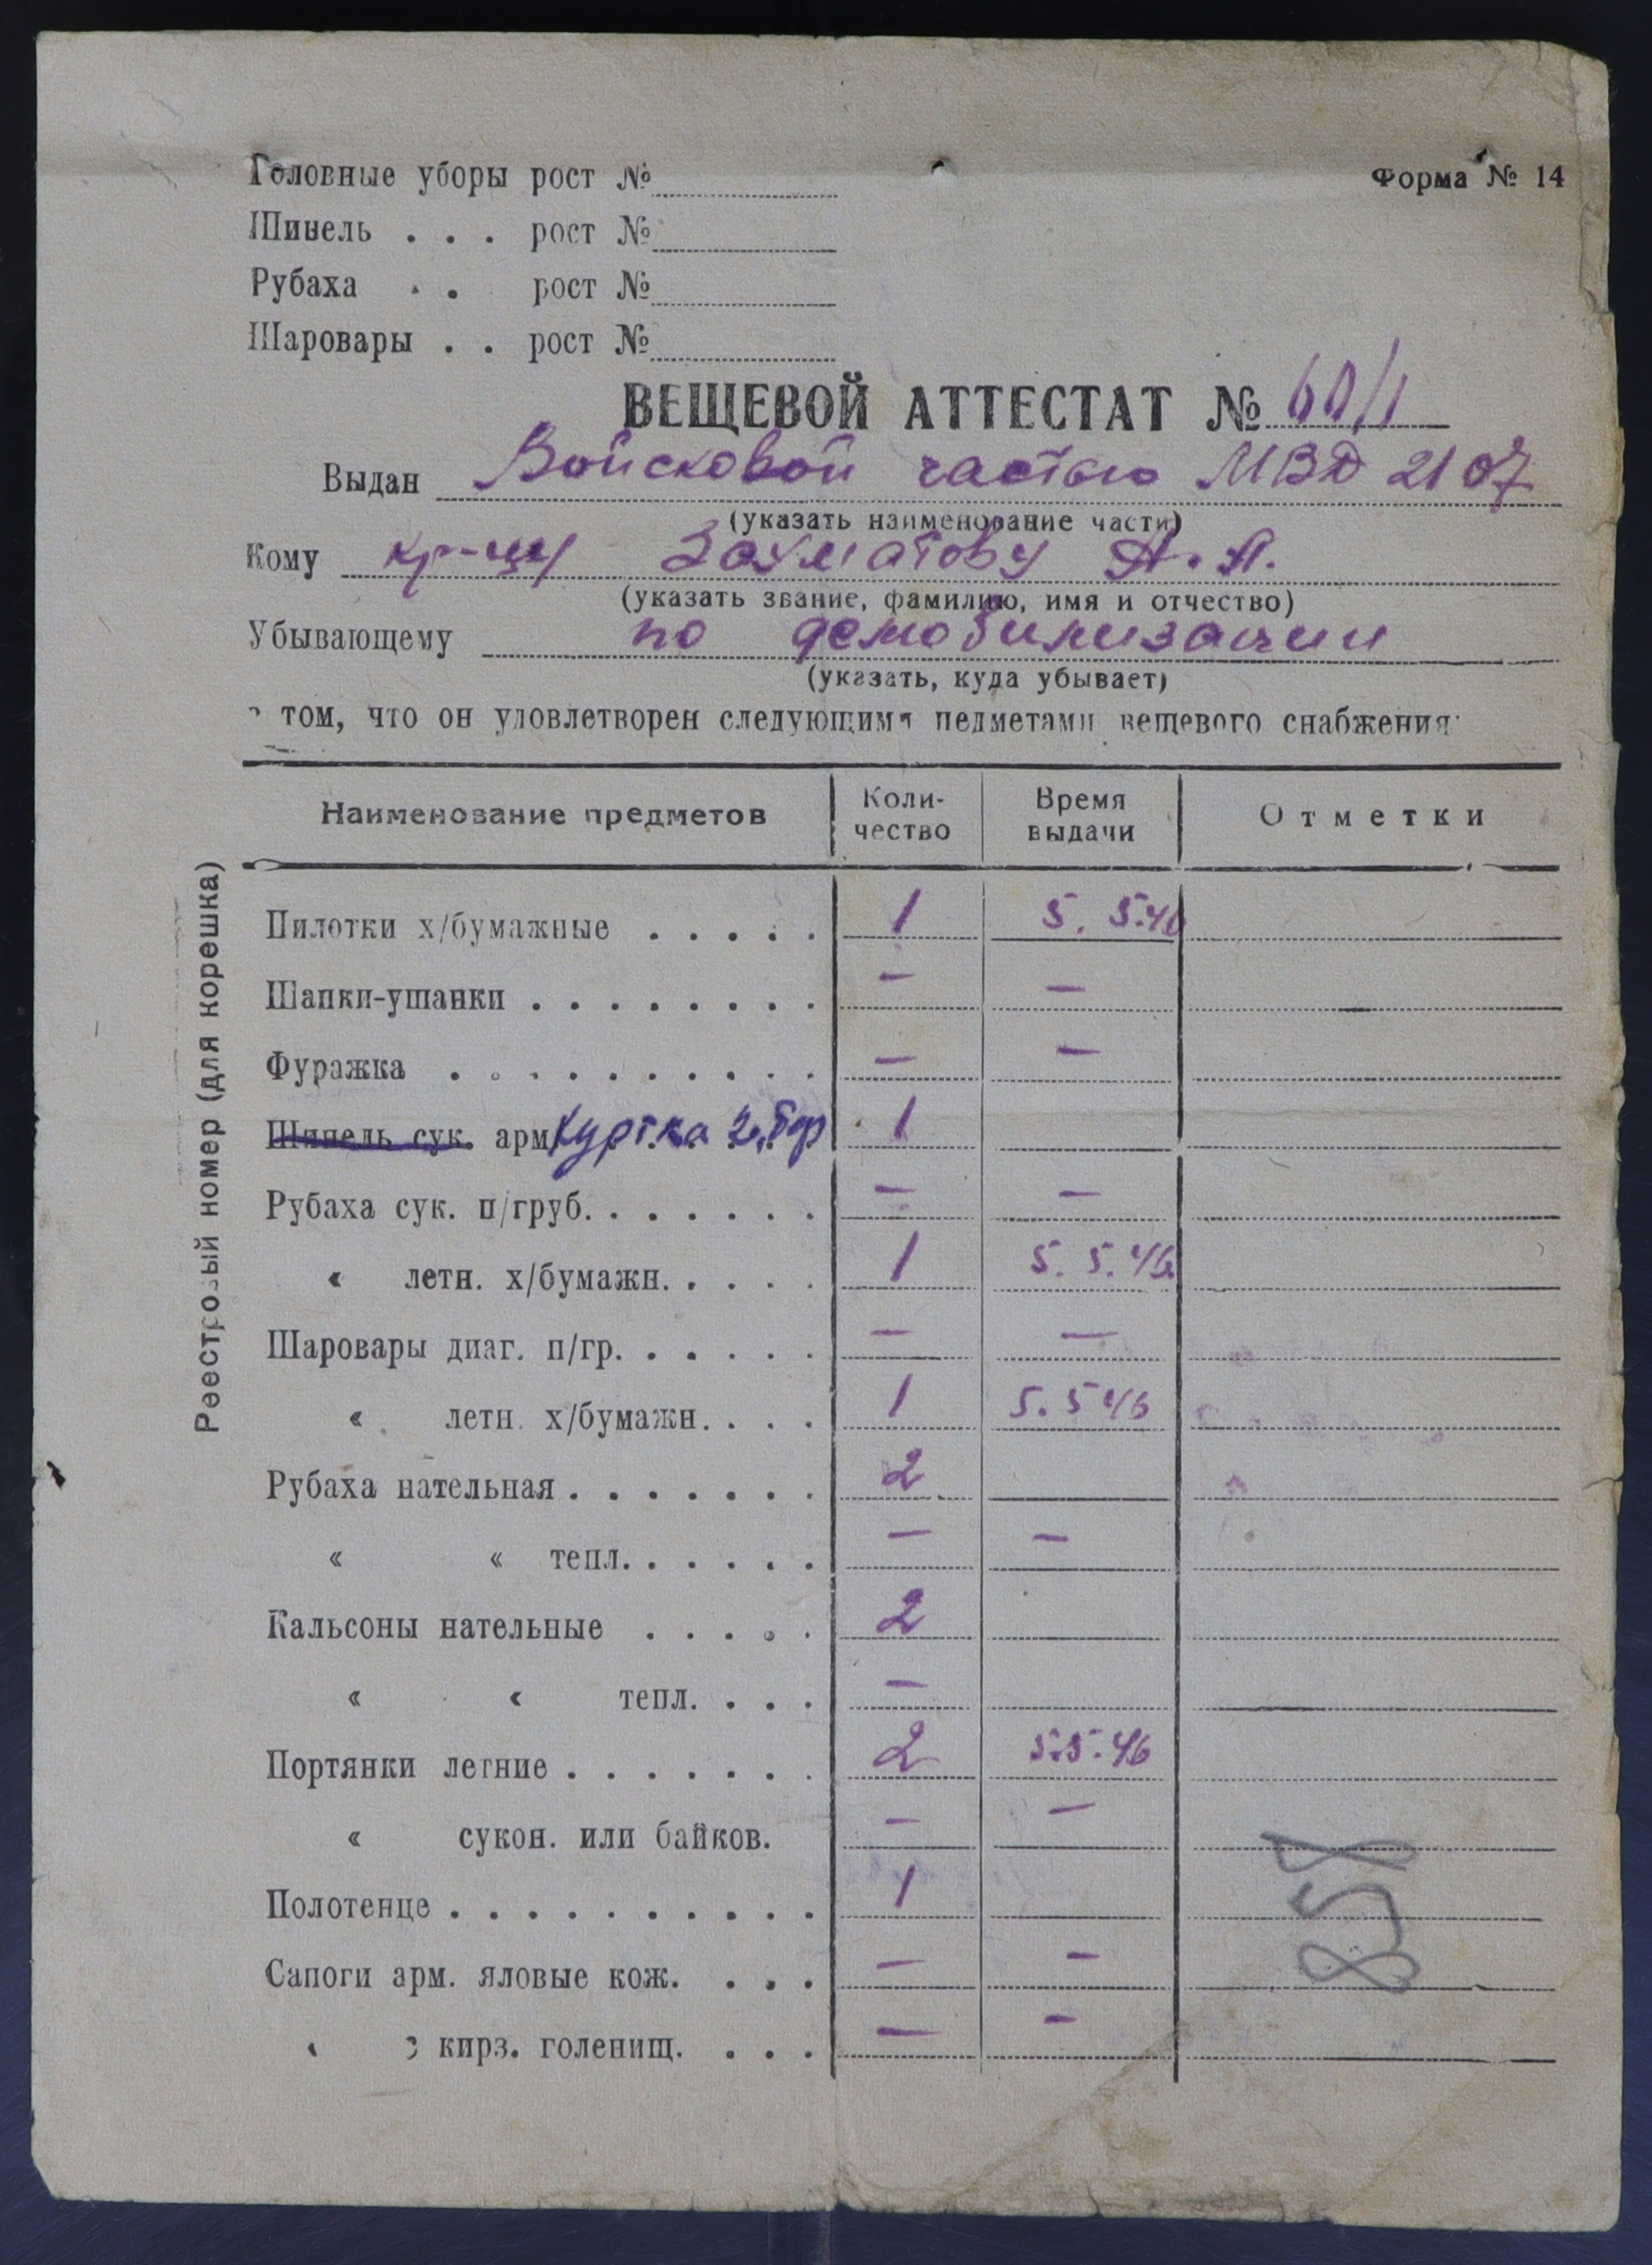 Головные уборы рост №
Форма № 14
Шинель . . . рост №
Рубаха . . рост №
Шаровары . . рост №
ВЕЩЕВОЙ АТТЕСТАТ № 60/1
Выдан Войсковой частью МВД 2107
(указать наименование части)
Кому кр-цу Захматову А. А.
(указать звание, фамилию, имя и отчество)
Убывающему по демобилизации
(указать, куда убывает)
том, что он удовлетворен следующими педметами вещевого снабжения:
Наименование предметов Коли-чество Время выдачи Отметки
Реестровый номер (для корешка)
Пилотки х/бумажные . . . . . 1 5. 5.46
Шапки-ушанки . . . . . . . . — —
Фуражка . . . . . . . . . . — —
Шинель сук. арм Куртка 1
Рубаха сук. п/груб. . . . . . . — —
« летн. х/бумажн. . . . . 1 5. 5. 46
Шаровары диаг. п/гр. . . . . . — —
« летн. х/бумажн. . . . 1 5. 5 46
Рубаха нательная . . . . . . . 2
« « тепл. . . . . . — —
Кальсоны нательные . . . . . 2
« « тепл. . . . —
Портянки летние . . . . . . . 2 5.5.46
« сукон. или байков. — —
Полотенце . . . . . . . . . . 1
Сапоги арм. яловые кож. . . . — —
« с кирз. голенищ. . . . — —